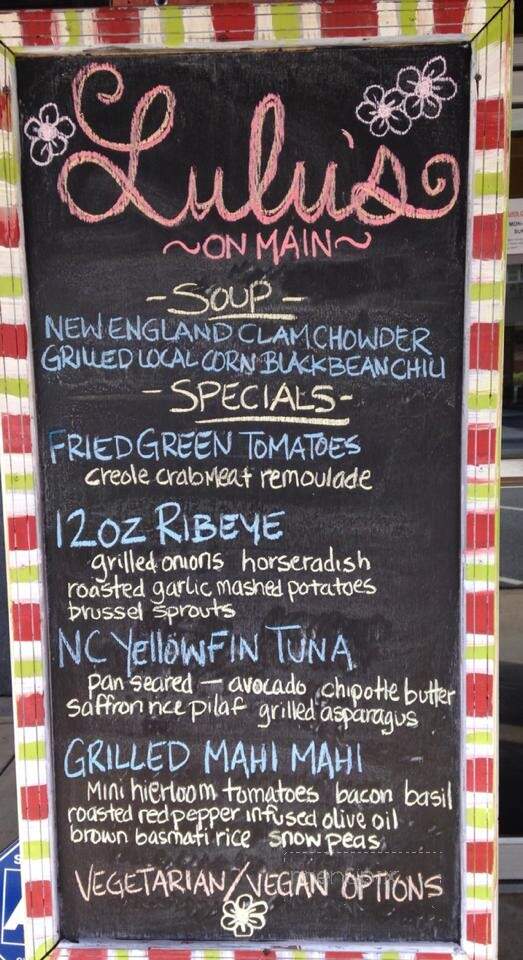 Lulu's
~ON MAIN~
- SOUP -
NEW ENGLAND CLAM CHOWDER
GRILLED LOCAL CORN BLACK BEAN CHILI
- SPECIALS -
FRIED GREEN TOMATOES
creole crabmeat remoulade
12oz RIBEYE
grilled onions horseradish
roasted garlic mashed potatoes
brussel sprouts
NC YellowFIN TUNA
pan seared — avocado chipotle butter
saffron rice pilaf grilled asparagus
GRILLED MAHI MAHI
mini hierloom tomatoes bacon basil
roasted red pepper infused olive oil
brown basmati rice snow peas
VEGETARIAN/VEGAN OPTIONS